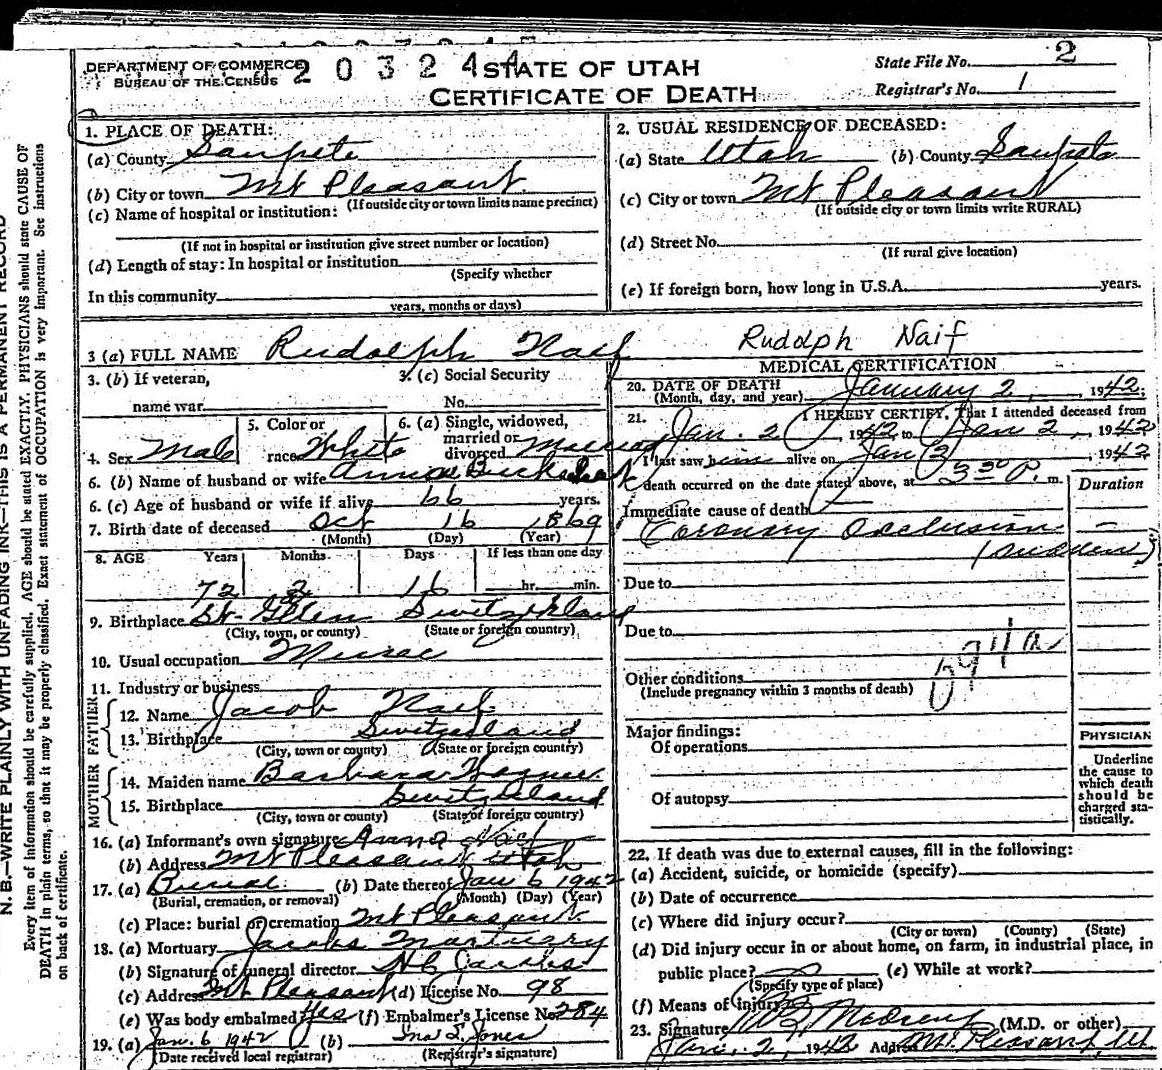 DEPARTMENT OF COMMERCE
BUREAU OF THE CENSUS
2 0 3 2 4
STATE OF UTAH
CERTIFICATE OF DEATH
State File No. 2
Registrar's No. 1
1. PLACE OF DEATH:
(a) County Sanpete
(b) City or town Mt Pleasant
(If outside city or town limits name precinct)
(c) Name of hospital or institution:
(If not in hospital or institution give street number or location)
(d) Length of stay: In hospital or institution
(Specify whether
In this community
years, months or days)
2. USUAL RESIDENCE OF DECEASED:
(a) State Utah (b) County Sanpete
(c) City or town Mt Pleasant
(If outside city or town limits write RURAL)
(d) Street No.
(If rural give location)
(e) If foreign born, how long in U.S.A. years.
3 (a) FULL NAME Rudolph Naif
Rudolph Naif
3. (b) If veteran,
name war
3. (c) Social Security
No.
4. Sex Male
5. Color or
race White
6. (a) Single, widowed,
married or
divorced Married
6. (b) Name of husband or wife Anna
6. (c) Age of husband or wife if alive 66 years.
7. Birth date of deceased Oct 16 1869
(Month) (Day) (Year)
8. AGE Years Months Days If less than one day
72 2 16 hr. min.
9. Birthplace St. Gallen Switzerland
(City, town, or county) (State or foreign country)
10. Usual occupation
11. Industry or business
FATHER
12. Name Jacob Naif
13. Birthplace Switzerland
(City, town or county) (State or foreign country)
MOTHER
14. Maiden name Barbara Wagner
15. Birthplace Switzerland
(City, town or county) (State of foreign country)
16. (a) Informant's own signature Anna Naif
(b) Address Mt Pleasant Utah
17. (a) Burial (b) Date thereof Jan 6 1942
(Burial, cremation, or removal) (Month) (Day) (Year)
(c) Place: burial or cremation Mt Pleasant
18. (a) Mortuary Jacobs Mortuary
(b) Signature of funeral director H C Jacobs
(c) Address Mt Pleasant (d) License No. 98
(e) Was body embalmed? Yes (f) Embalmer's License No. 284
19. (a) Jan. 6 1942 (b) Jones
(Date received local registrar) (Registrar's signature)
MEDICAL CERTIFICATION
20. DATE OF DEATH January 2, 1942;
(Month, day, and year)
21. I HEREBY CERTIFY, That I attended deceased from
Jan. 2, 1942, to Jan 2, 1942
I last saw him alive on Jan 2, 1942
death occurred on the date stated above, at 3 30 P. m.
Duration
Immediate cause of death
Coronary Occlusion
(sudden)
Due to
Due to
Other conditions
(Include pregnancy within 3 months of death)
Major findings:
Of operations
Of autopsy
PHYSICIAN
Underline
the cause to
which death
should be
charged sta-
tistically.
22. If death was due to external causes, fill in the following:
(a) Accident, suicide, or homicide (specify)
(b) Date of occurrence
(c) Where did injury occur?
(City or town) (County) (State)
(d) Did injury occur in or about home, on farm, in industrial place, in
public place? (e) While at work?
(Specify type of place)
(f) Means of injury
23. Signature (M.D. or other)
Jan. 2, 1942 Address Mt. Pleasant, Ut.
N. B.—WRITE PLAINLY WITH UNFADING INK—THIS IS A PERMANENT RECORD
Every item of information should be carefully supplied. AGE should be stated EXACTLY. PHYSICIANS should state CAUSE OF
DEATH in plain terms, so that it may be properly classified. Exact statement of OCCUPATION is very important. See instructions
on back of certificate.